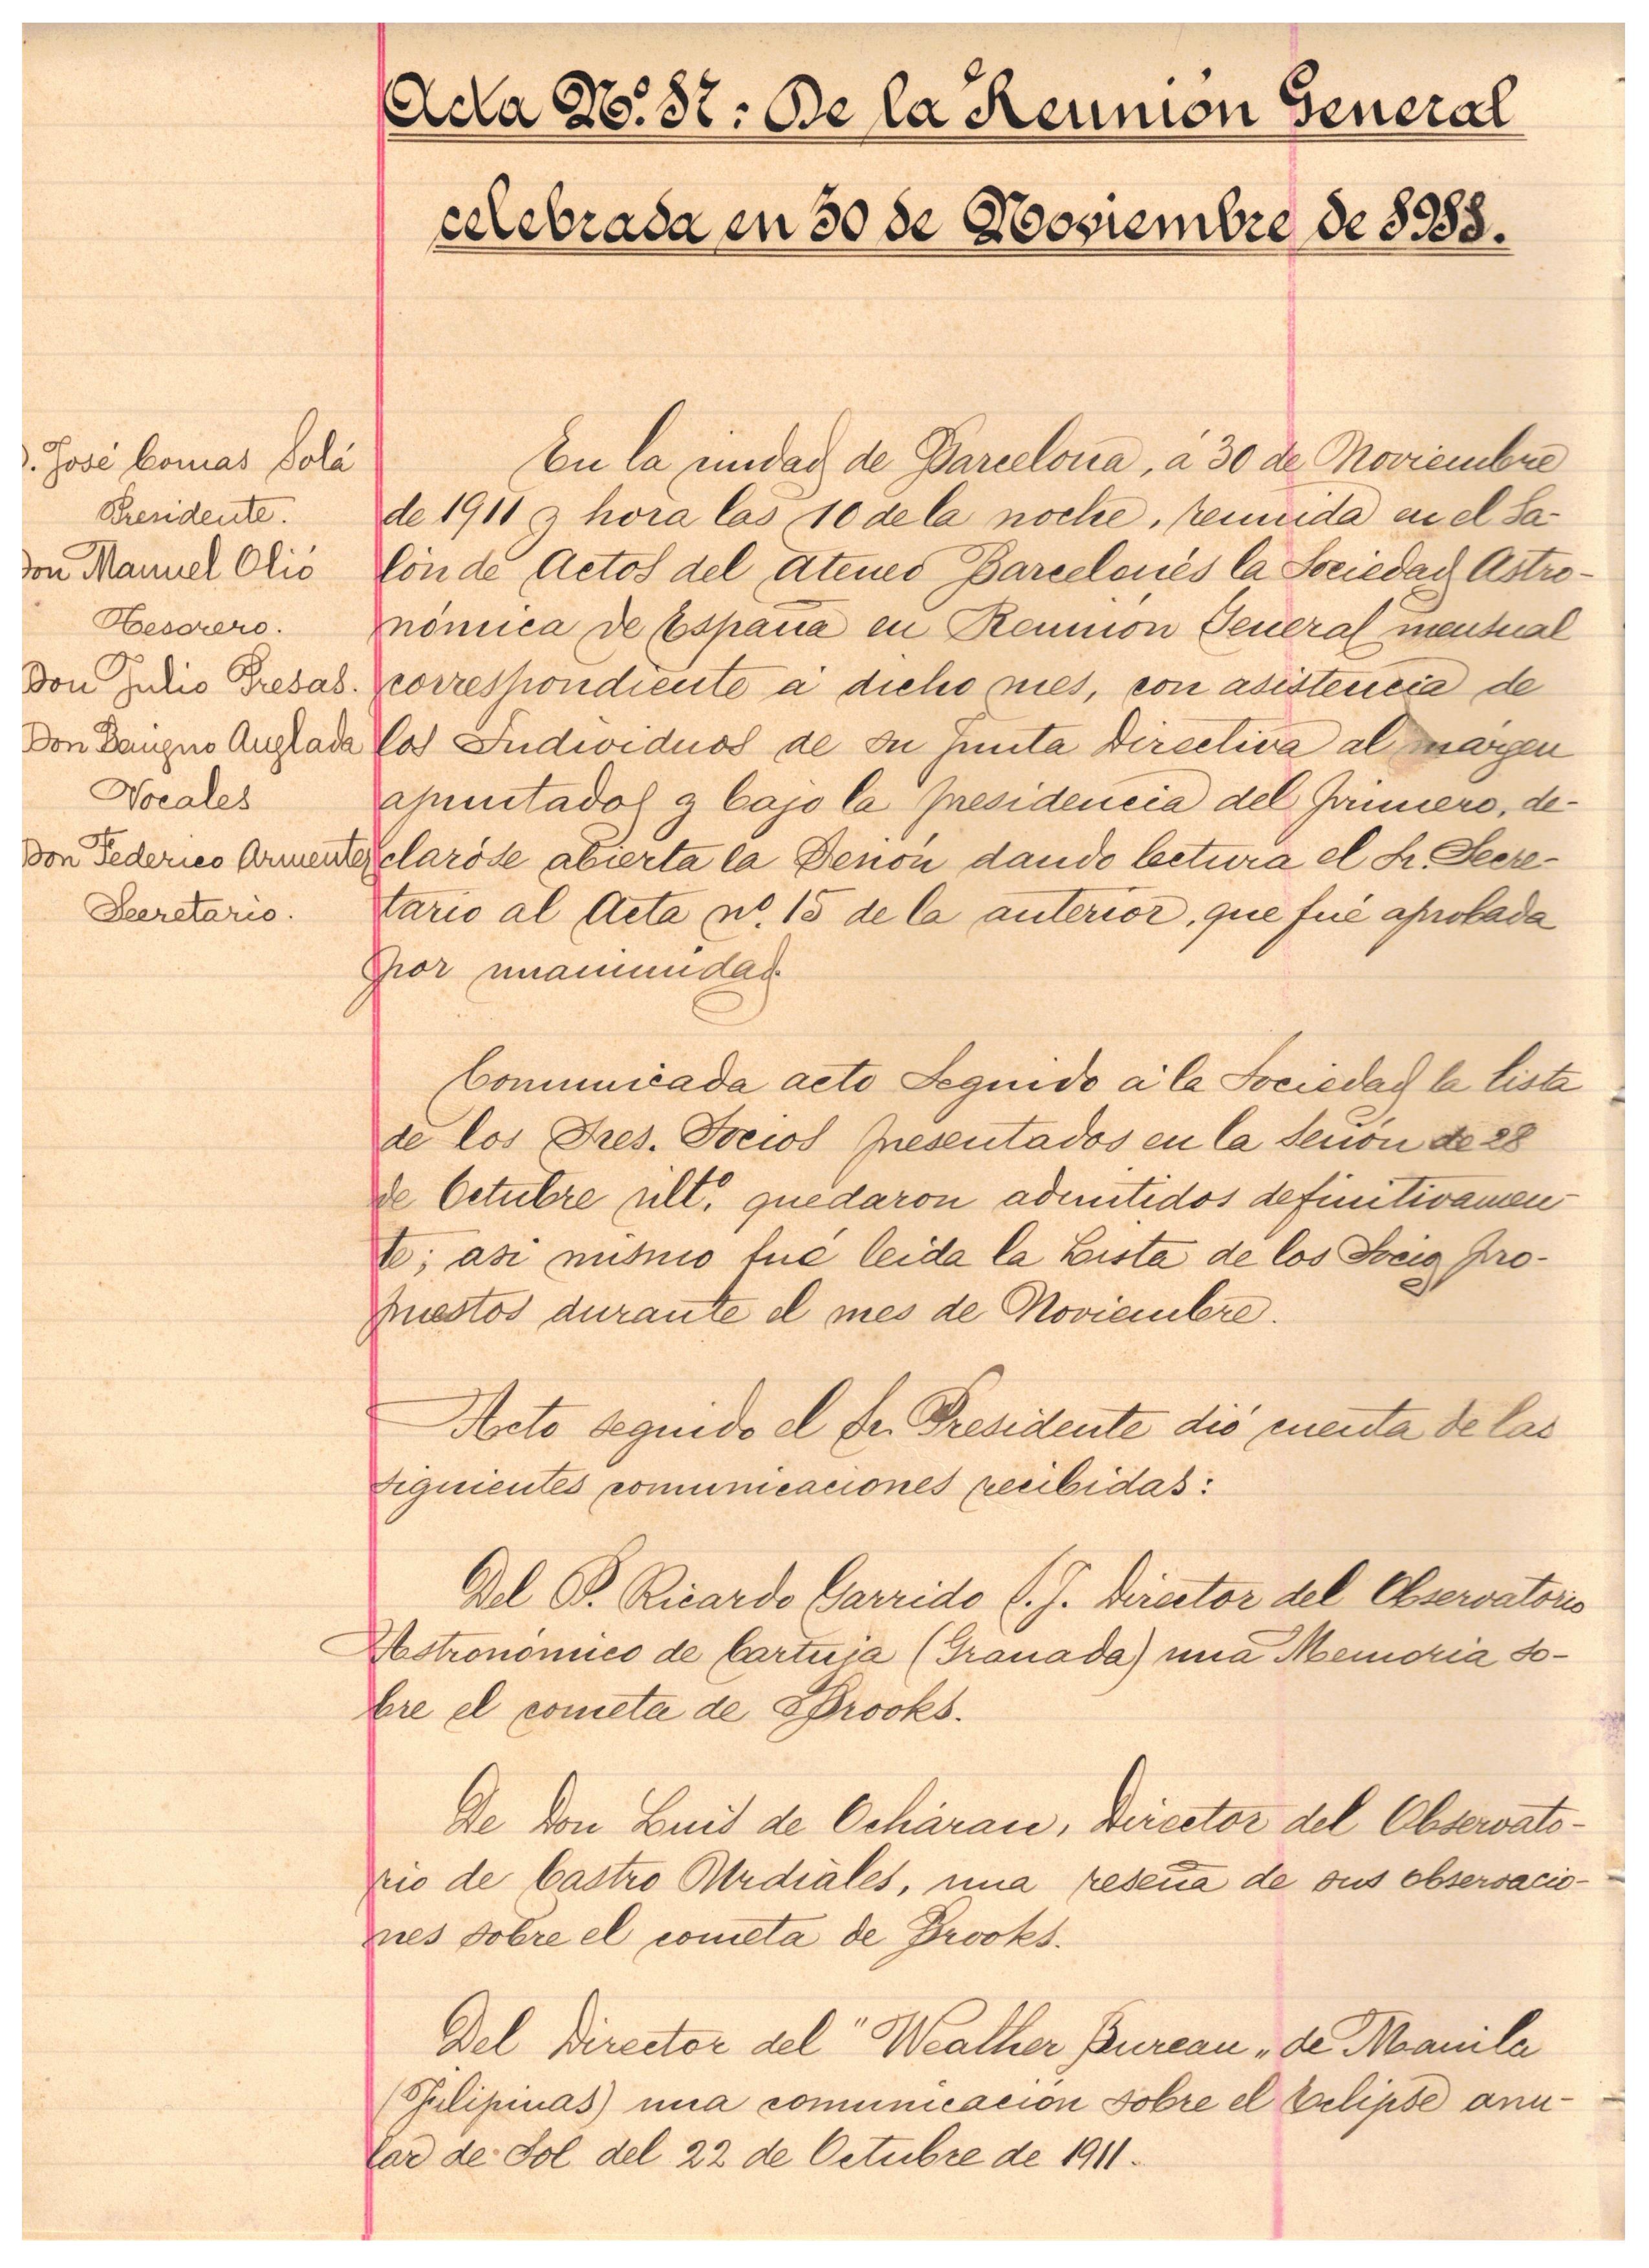 Acta Nº. : De la Reunion General
celebrada en 30 de Noviembre de 8988.
D. José Comas Solá
Presidente.
Don Manuel Olió
Tesorero.
Don Julio Presas.
Don Benigno Anglada
Vocales
Don Federico Armenter
Secretario.
En la ciudad de Barcelona, á 30 de Noviembre
de 1911 y hora las 10 de la noche, reunida en el Sa-
lón de Actos del Ateneo Barcelonés la Sociedad Astro-
nómica de España en Reunion General mensual
correspondiente á dicho mes, con asistencia de
los Individuos de su Junta Directiva al márgen
apuntados y bajo la presidencia del primero, de-
claróse abierta la Sesión dando lectura el Sr. Secre-
tario al Acta nº. 15 de la anterior, que fué aprobada
por unanimidad.
Comunicada acto seguido á la Sociedad la lista
de los Sres. Socios presentados en la sesión de 28
de Octubre últº. quedaron admitidos definitivamen-
te; asi mismo fué leida la Lista de los Socios pro-
puestos durante el mes de Noviembre.
Acto seguido el Sr. Presidente dió cuenta de las
siguientes comunicaciones recibidas:
Del P. Ricardo Garrido S.J. Director del Observatorio
Astronómico de Cartuja (Granada) una Memoria so-
bre el cometa de Brooks.
De Don Luis de Ocháran, Director del Observato-
rio de Castro Urdiáles, una reseña de sus observacio-
nes sobre el cometa de Brooks.
Del Director del "Weather Bureau„ de Manila
(Filipinas) una comunicación sobre el Eclipse anu-
lar de Sol del 22 de Octubre de 1911.